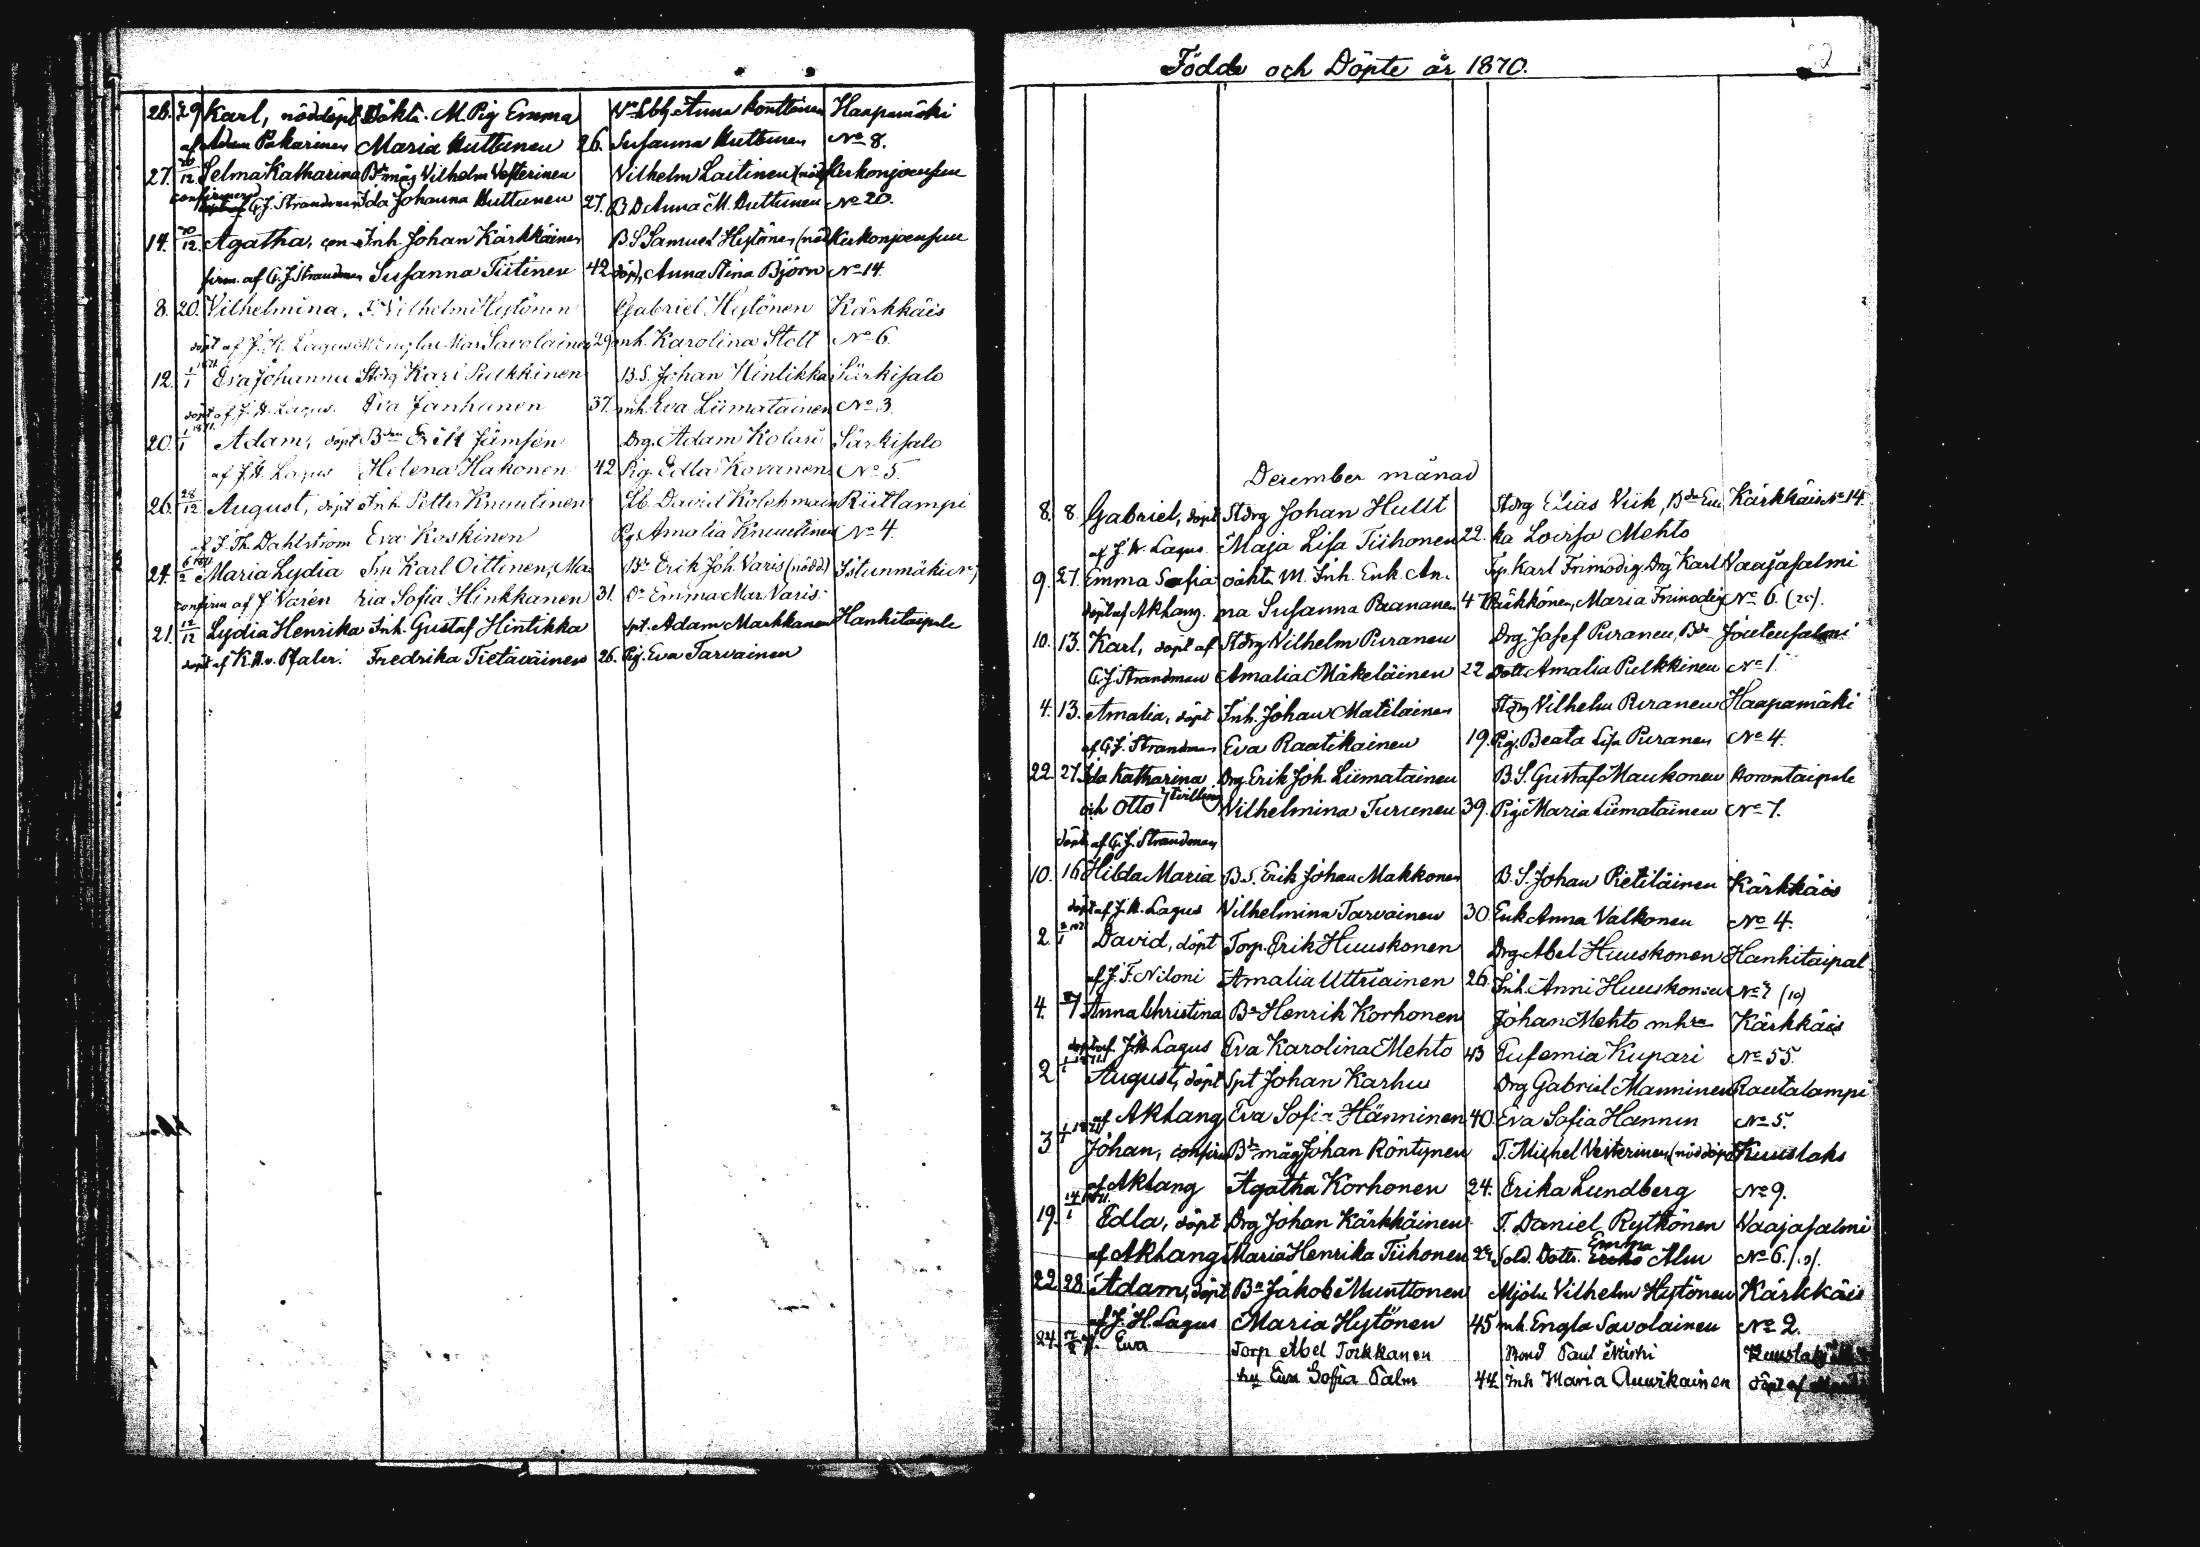 26. 29 Karl, nöddöpt Oäkta. M. Pig Emma Anna Konttinen Haapamäki
af Adam Pakarinen Maria Huttunen 26. Susanna Huttunen No 8.
27. 10/12 Selma Katharina Bdemåg Vilhelm Vesterinen Vilhelm Laitinen (nöd Kerkonjoensuu
confirmerad G J. Strandman Ida Johanna Huttunen 27. B D Anna M. Huttunen No 20.
14. 10/12. Agatha, con- Inh. Johan Kärkkäinen B. S. Samuel Hytönen (nöd Kerkonjoensuu
firm. af G. J. Strandman Susanna Tiitinen 42 döp), Anna Stina Björn No 14.
8. 20. Vilhelmina, T. Vilhelm Hytönen Gabriel Hytönen Kärkkäis
döpt af J. H. Lagus Engla Mar Savolainen 29 mh. Karolina Stolt No 6.
12. 1/1 1871 Eva Johanna Stdrg Karl Pulkkinen B. S. Johan Hintikka Särkisalo
döpt af J. H. Lagus. Eva Janhunen 37. mh. Eva Liimatainen No 3.
20. 1/1 1871. Adam, döpt Bden Erik Jämsén Drg. Adam Kolari Särkisalo
af J. H. Lagus Helena Hakonen 42 Pig. Edla Kovanen No 5.
26. 28/12 August, döpt Inh Petter Knuutinen Lb. David Kolehmain Riitlampi
af J. Th. Dahlström Eva Koskinen Pig Amalia Knuutinen No 4.
24. 6/2 1871 Maria Lydia Inh Karl Oittinen, Ma- Bde Erik Joh. Varis (nödd.) Istunmäki No 7
confirm af J Varén ria Sofia Hinkkanen 31. Emma Mar Varis.
21. 12/12 Lydia Henrika Inh. Gustaf Hintikka Spt. Adam Markkanen Hanhitaipale
döpt af K. A. v. Pfaler. Fredrika Tietäväinen 26. Pig. Eva Tarvainen
Födde och Döpte år 1870.
December månad
8. 8. Gabriel, döpt Stdrg Johan Hullt Stdrg Elias Viik, Bde En Kärkkäis No 14.
af J. H. Lagus Maja Lisa Tiihonen 22. ka Lovisa Mehto
9. 27. Emma Sofia oäkta M. Inh. Enk. An- Trp. Karl Frimodig Drg Karl Vaajasalmi
döpt af AKLang. na Susanna Paananen 47 Räkkönen, Maria Frimodig No 6. (20).
10. 13. Karl, döpt af Stdrg Vilhelm Puranen Drg Josef Puranen, Bde Joutensalmi
G J Strandman Amalia Mäkeläinen 22 Dott. Amalia Pulkkinen No 1.
4. 13. Amalia, döpt Inh. Johan Matilainen Stdrg Vilhelm Puranen Haapamäki
af G J. Strandman Eva Raatikainen 19. Pig. Beata Lisa Puranen No 4.
22. 27. Ida Katharina Drg. Erik Joh. Liimatainen B. S. Gustaf Maukonen Horontaipale
och Otto tvilling Vilhelmina Turunen 39. Pig. Maria Liimatainen No 7.
döpt af G. J. Strandman
10. 16 Hilda Maria B. S. Erik Johan Makkonen B. S. Johan Pietiläinen Kärkkäis
döpt af J. H. Lagus Vilhelmina Tarvainen 30. Enk Anna Valkonen No 4.
2. David, döpt Torp. Erik Huuskonen Drg. Abel Huuskonen Hanhitaipal
af J. F. Niloni Amalia Uttriainen 26. Inh. Anni Huuskonen No 7 (10)
4. 7 Anna Christina Bde Henrik Korhonen Johan Mehto mhra Kärkkäis
döpt af. J. H. Lagus Eva Karolina Mehto 43 Eufemia Kupari No 55.
2 1/1 1871 August, döpt Spt Johan Karhu Drg Gabriel Manninen Rautalampi
af AKLang Eva Sofia Hänninen 40. Eva Sofia Hannin No 5.
3 1/1 1871 Johan, confirm Bdemåg Johan Röntynen T. Michel Vesterinen, (nöddöpt Kuuslaks
af AKLang Agatha Korhonen 24. Erika Lundberg No 9.
19. 14/1 1871. Edla, döpt Drg Johan Kärkkäinen T. Daniel Rytkönen Vaajasalmi
af AKLang Maria Henrika Tiihonen Sold. Dottr. Emma Alm No 6.
22. 28. Adam, döpt Bde Jakob Munttonen Mjöln Vilhelm Hytönen Kärkkäis
af J. H. Lagus Maria Hytönen 45 mh. Engla Savolainen No 2.
24. Eva Torp Abel Torkkanen Bond Paul Närhi Kuuslaks
hu Eva Sofia Palm 44 Inh Maria Auvikainen döpt af